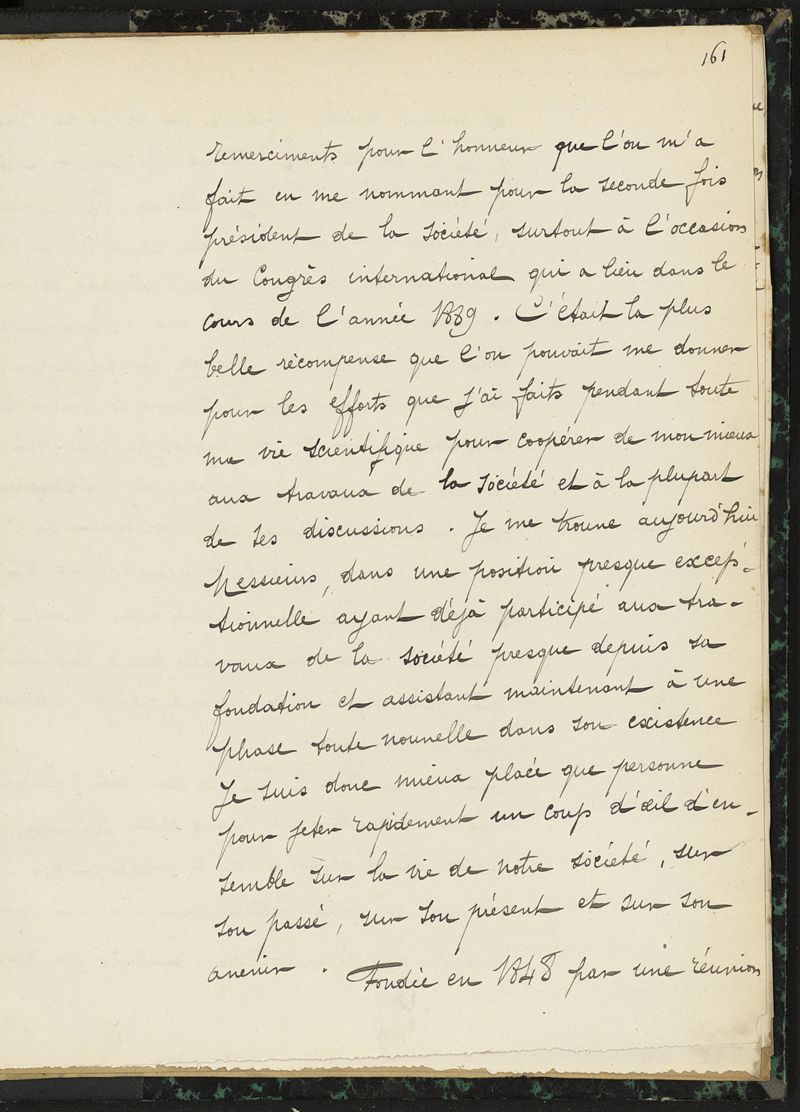 161
remerciments pour l'honneur que l'on m'a
fait en me nommant pour la seconde fois
président de la société, surtout à l'occasion
du Congrès international qui a lieu dans le
cours de l'année 1889. C'était la plus
belle récompense que l'on pouvait me donner
pour les efforts que j'ai faits pendant toute
ma vie scientifique pour coopérer de mon mieux
aux travaux de la société et à la plupart
de ses discussions. Je me trouve aujourd'hui
Messieurs, dans une position presque excep-
tionnelle ayant déjà participé aux tra-
vaux de la société presque depuis sa
fondation et assistant maintenant à une
phase toute nouvelle dans son existence
Je suis donc mieux placé que personne
pour jeter rapidement un coup d'œil d'en-
semble sur la vie de notre société, sur
son passé, sur son présent et sur son
avenir. Fondée en 1848 par une réunion